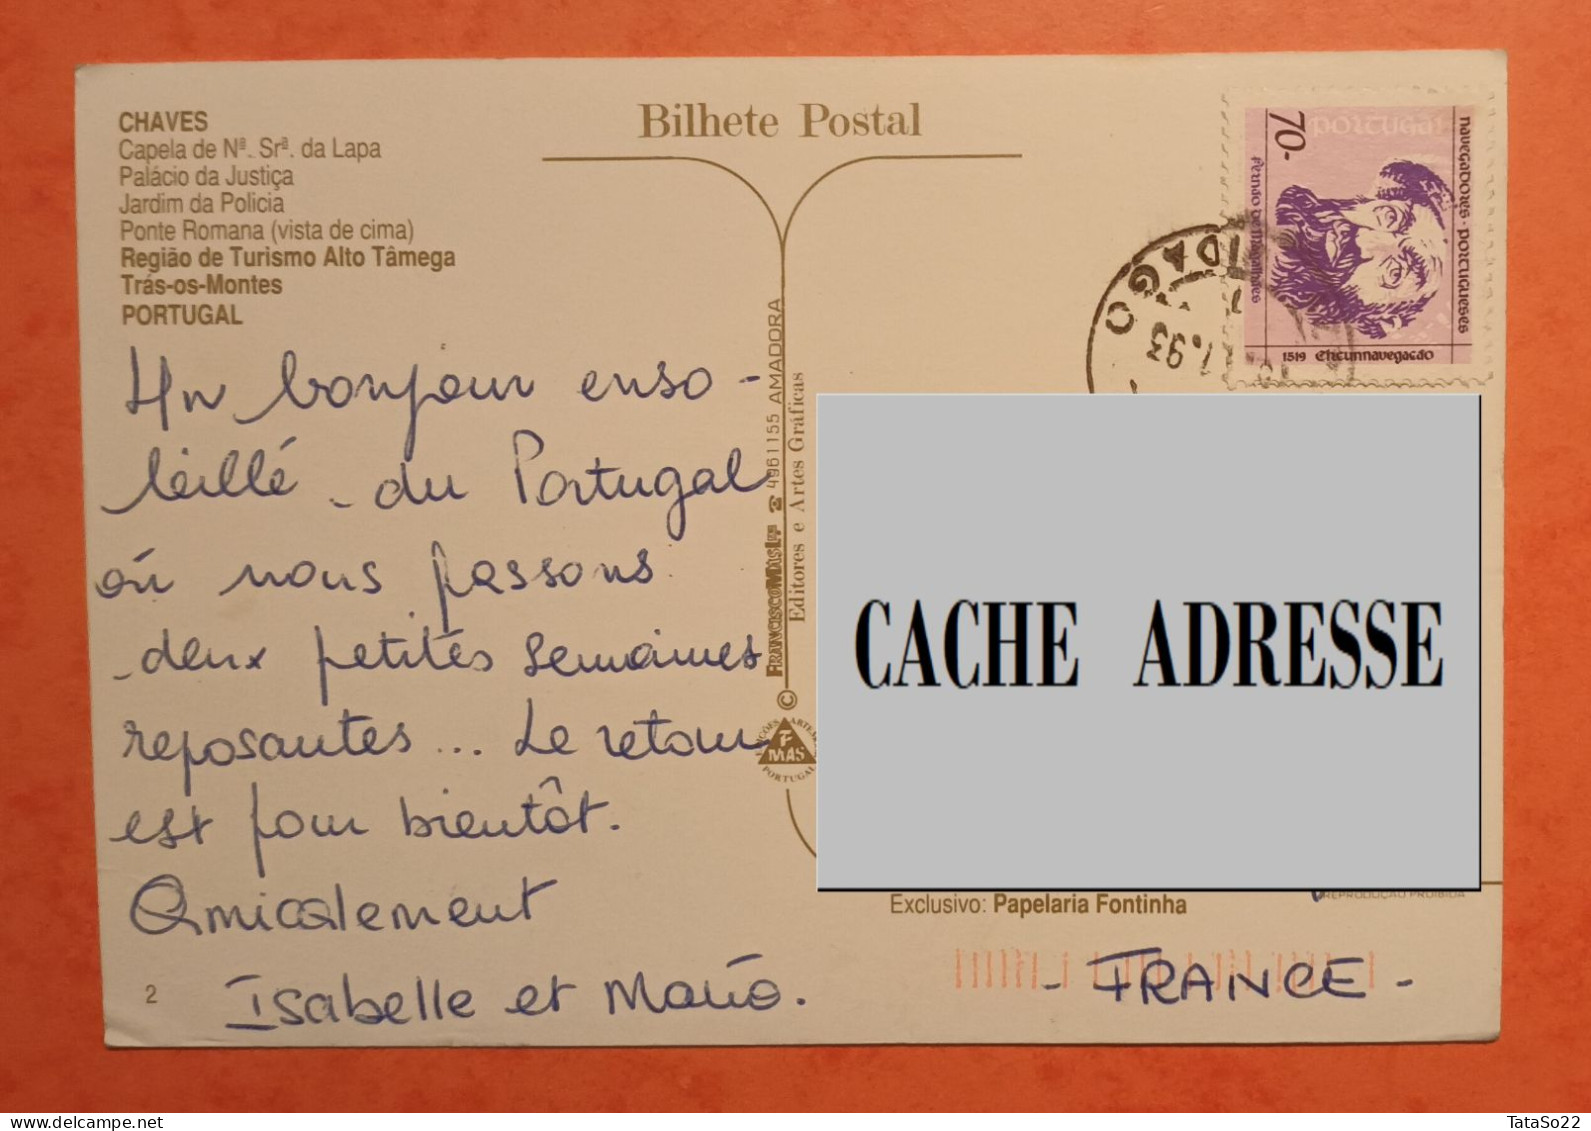 CHAVES
Capela de Nª. Srª. da Lapa
Palácio da Justiça
Jardim da Policia
Ponte Romana (vista de cima)
Região de Turismo Alto Tâmega
Trás-os-Montes
PORTUGAL
Un bonjour enso-
leillé du Portugal
où nous passons
deux petites semaines
reposantes... Le retour
est pour bientôt.
Amicalement
Isabelle et Mario.
2
Bilhete Postal
© FRANCISCO MAS Lda ☎ 4961155 AMADORA
Editores e Artes Gráficas
F
MAS
PORTUGAL
70-
PORTUGAL
navegadores portugueses
Fernão de Magalhães
1519 Circunnavegação
VIDAGO
.93
CACHE ADRESSE
REPRODUÇÃO PROIBIDA
Exclusivo: Papelaria Fontinha
- FRANCE -
delcampe.net
TataSo22